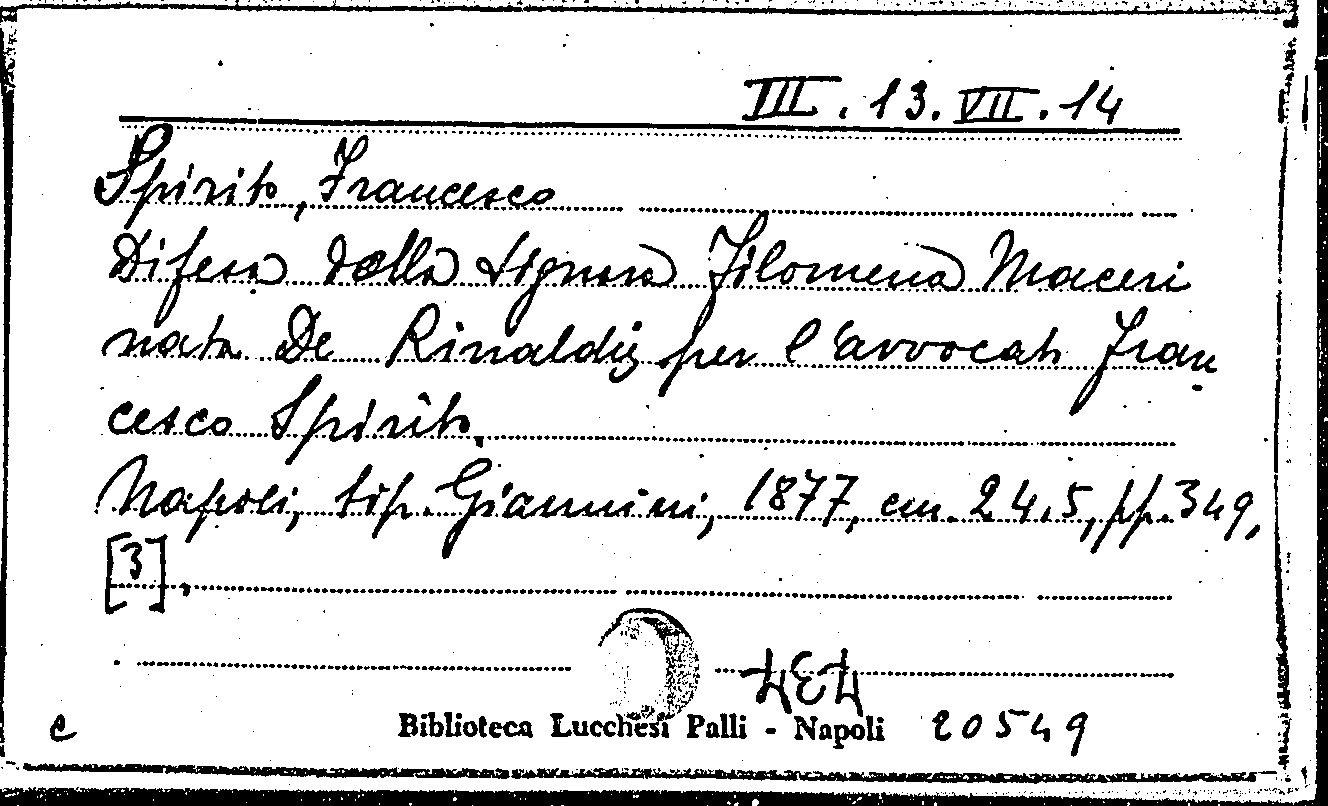 III.13.VII.14
Spirito, Francesco
Difesa della signora Filomena Maceri
nata De Rinaldis per l'avvocato Fran
cesco Spirito.
Napoli, tip. Giannini, 1877, cm. 24.5, pp. 349,
[3].
Biblioteca Lucchesi Palli - Napoli 20549
c